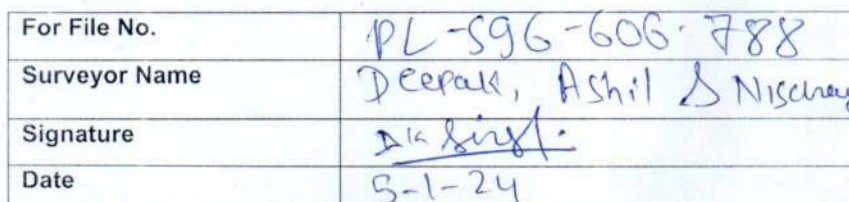 For File No. PL-596-606-788
Surveyor Name Deepak, Ashil & Nischay
Signature DK Singh
Date 5-1-24